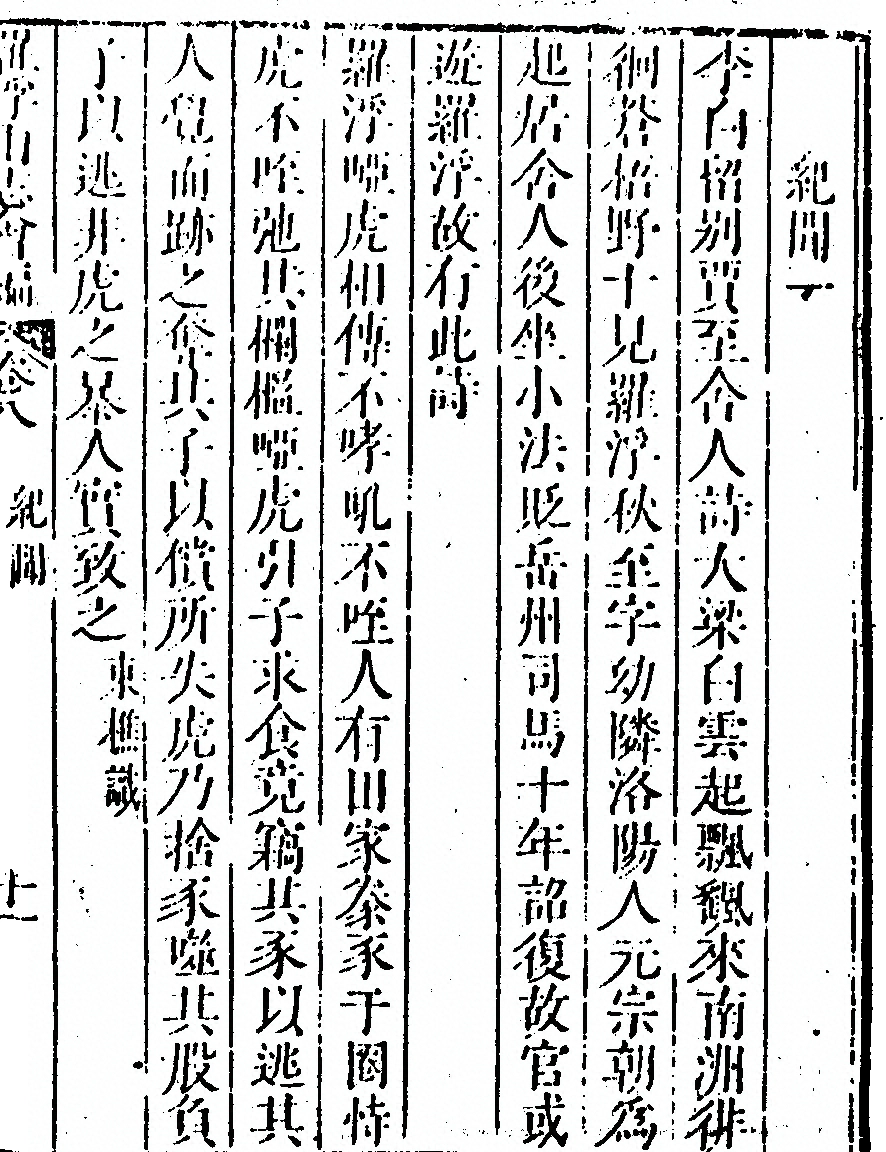 紀聞下
李白留别賈至舍人詩大梁白雲起飄飖來南洲徘
徊蒼梧野十見羅浮秋至字幼隣洛陽人元宗朝爲
起居舍人後坐小法貶岳州司馬十年詔復故官或
遊羅浮故有此詩
羅浮啞虎相傳不哮吼不咥人有田家豢豕于圈恃
虎不咥弛其欄檻啞虎引子求食竟竊其豕以逃其
人覺而跡之奪其子以償所失虎乃捨豕噬其股負
子以逃非虎之暴人實致之 東樵識
羅浮山志會編 卷八 紀聞 十一